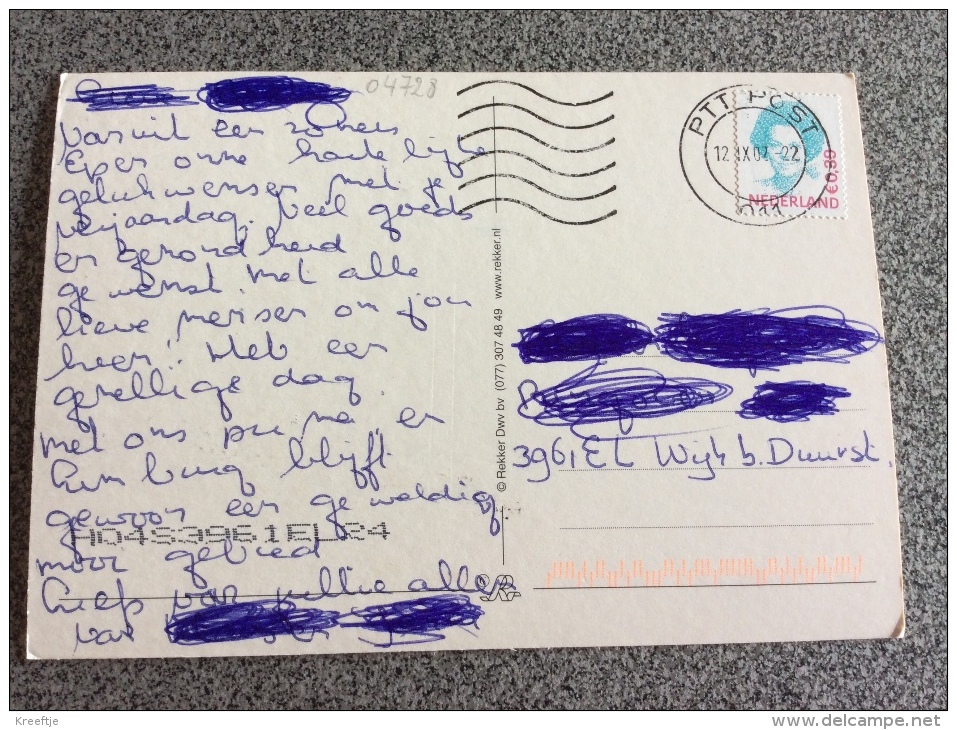 04728
vanuit een zomers
Epen onze hartelijke
gelukwensen met je
verjaardag. Veel goeds
en gezondheid
gewenst. Met alle
lieve mensen om jou
heen! Heb een
gezellige dag.
met ons prima en
Limburg blijft
gewoon een geweldig
mooi gebied
Liefs van jullie alle
van
H04S3961EL24
© Rekker Dwv bv (077) 307 48 49 www.rekker.nl
PTT POST
12 IX 02 22
€0,39
NEDERLAND
3961 EL Wijk b. Duurst.
Kreeftje
delcampe.net